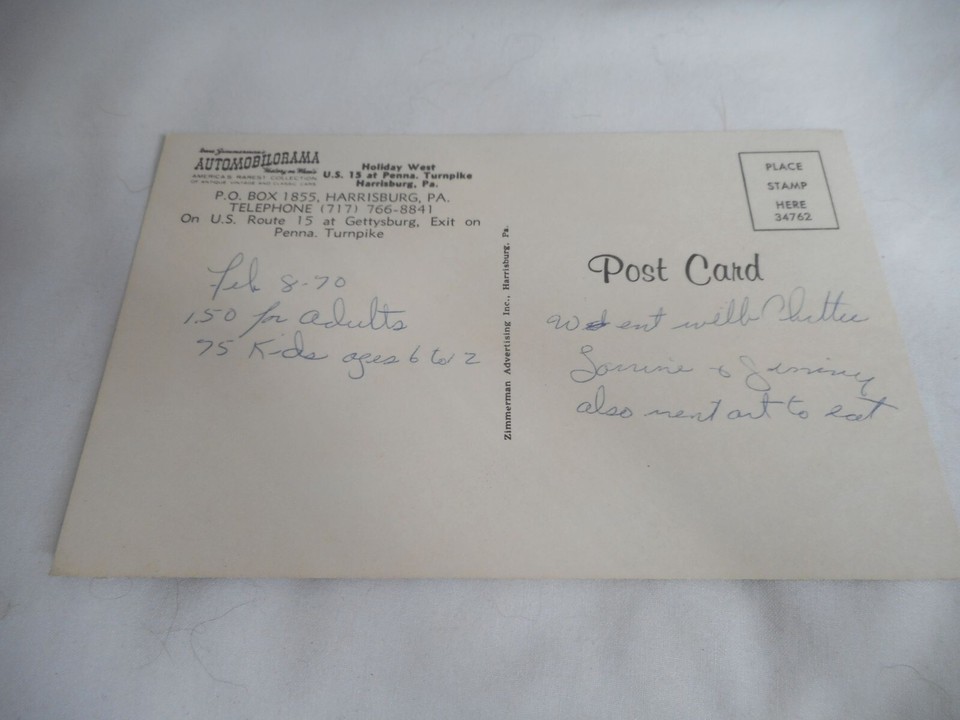 AUTOMOBILORAMA
AMERICA'S RAREST COLLECTION
OF ANTIQUE, VINTAGE AND CLASSIC CARS
Holiday West
U.S. 15 at Penna. Turnpike
Harrisburg, Pa.
P.O. BOX 1855, HARRISBURG, PA.
TELEPHONE (717) 766-8841
On U.S. Route 15 at Gettysburg, Exit on
Penna. Turnpike
Feb 8-70
1.50 for adults
75 Kids ages 6 to 12
Zimmerman Advertising Inc., Harrisburg, Pa.
PLACE
STAMP
HERE
34762
Post Card
went with
& Jimmy
also went out to eat